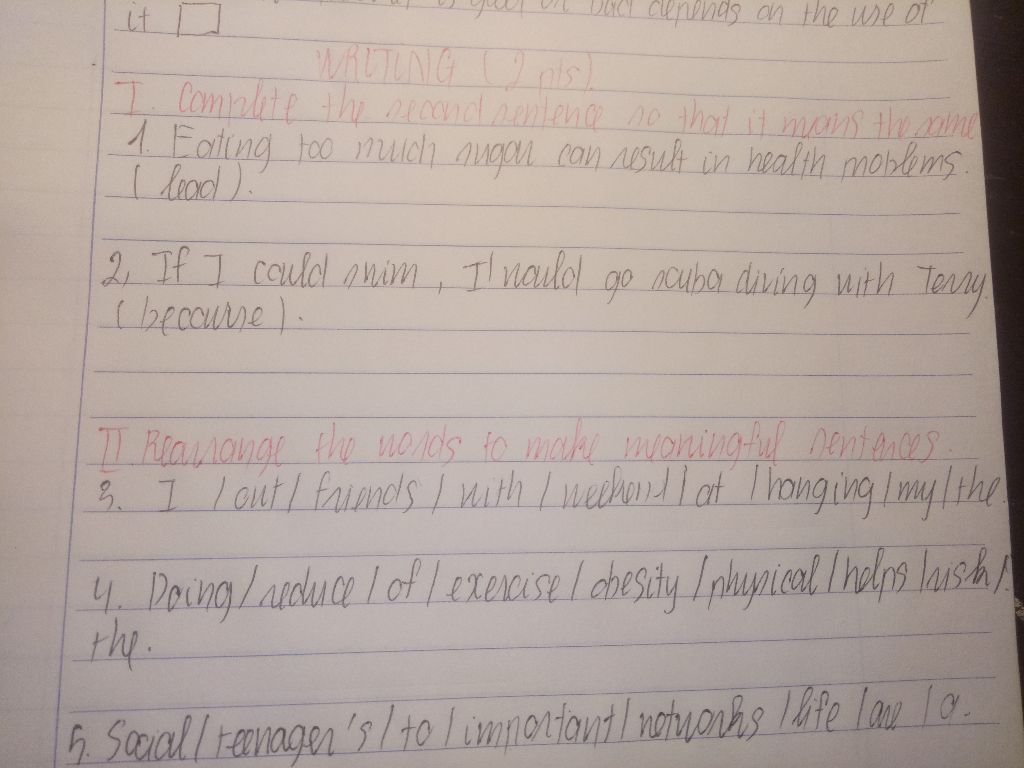 is good or bad depends on the use of
it
WRITING (2 pts).
I. Complete the second sentence so that it means the same
1. Eating too much sugar can result in health problems.
(lead).
2, If I could swim, I'would go scuba diving with Terry.
(because).
II Rearrange the words to make meaningful sentences.
3. I / out / friends / with / weekend / at / hanging / my / the.
4. Doing / reduce / of / exercise / obesity / physical / helps / risk /
the.
5. Social / teenager's / to / important / networks / life / are / a.